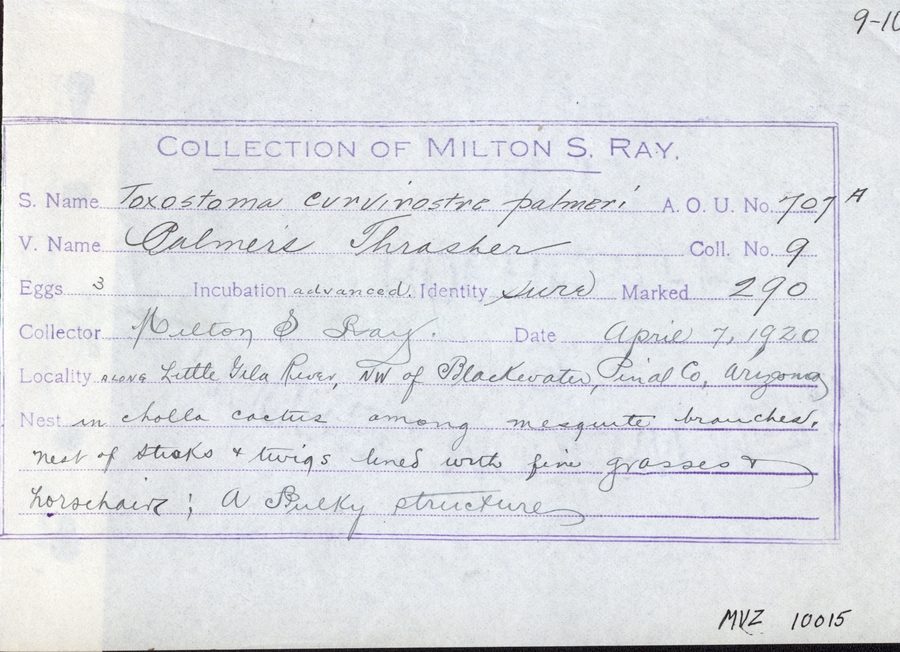 9-10
COLLECTION OF MILTON S. RAY.
S. Name Toxostoma curvirostre palmeri A. O. U. No. 707 A
V. Name Palmer's Thrasher Coll. No. 9
Eggs 3 Incubation advanced. Identity sure Marked 290
Collector Milton S Ray. Date April 7, 1920
Locality along Little Gila River, NW of Blackwater, Pinal Co, Arizona
Nest in cholla cactus among mesquite branches.
nest of sticks & twigs lined with fine grasses &
horsehair; A Bulky structure
MVZ 10015